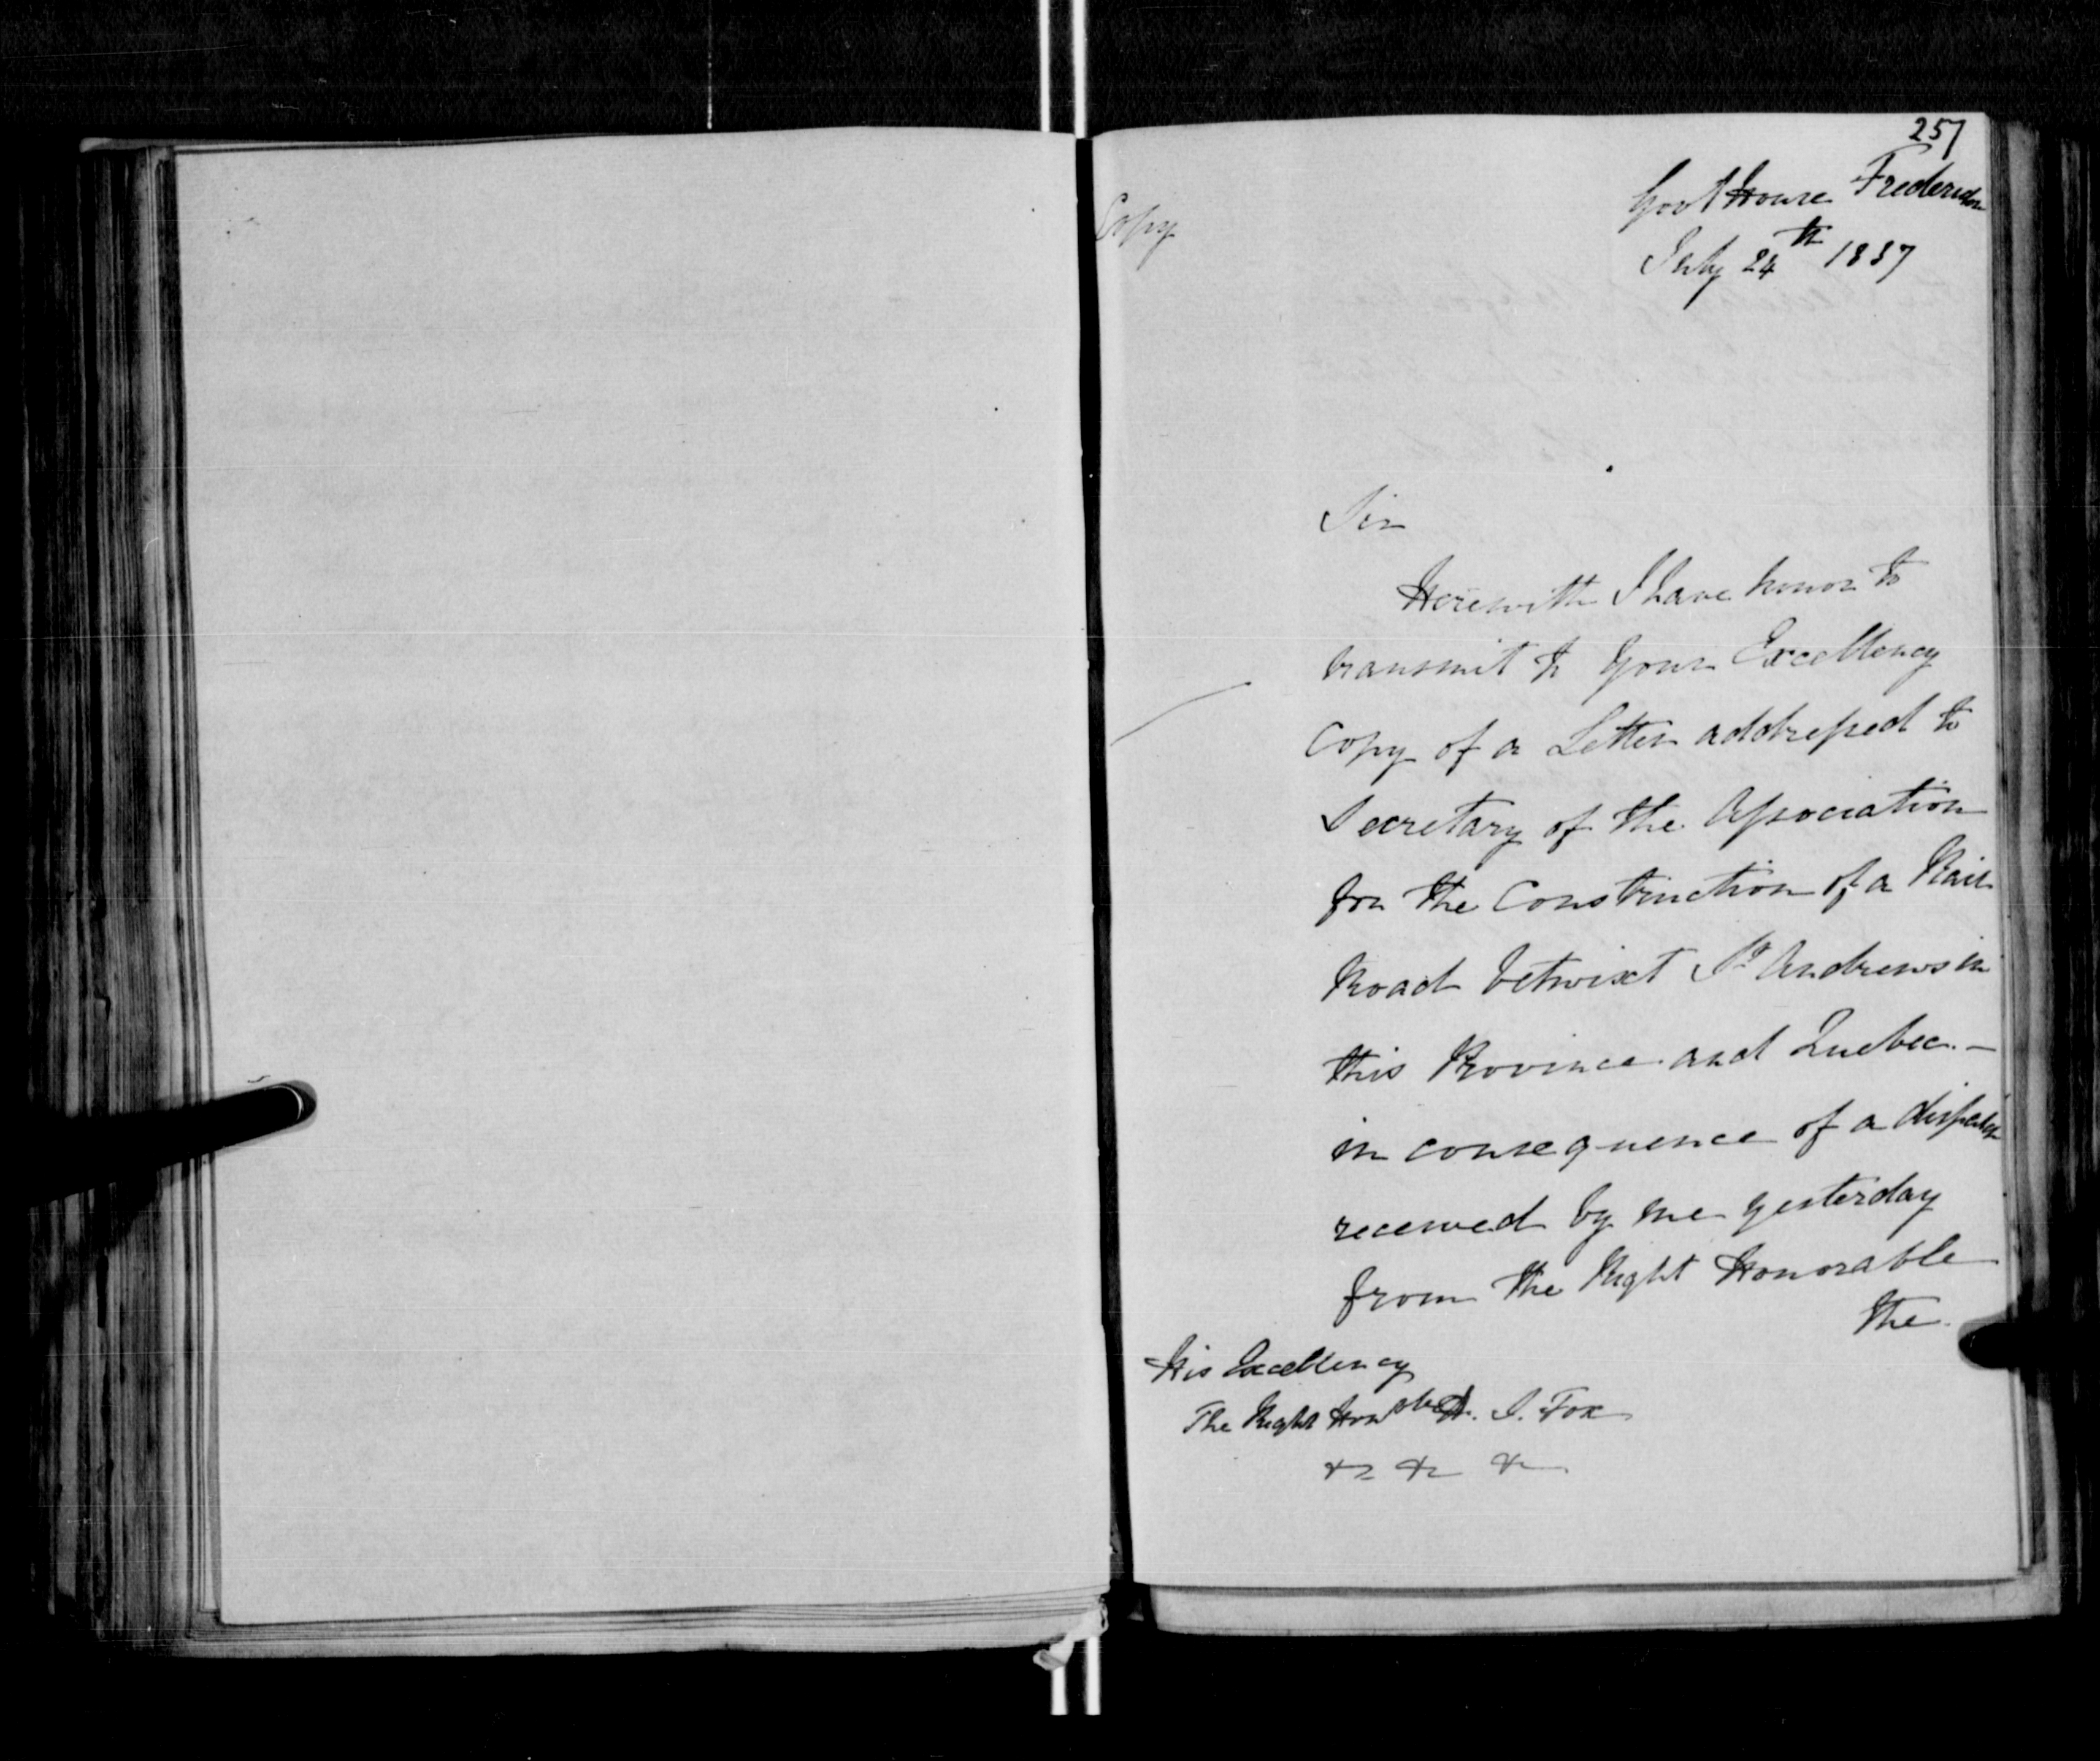 257
Copy
Govt House Frederickn
July 24th 1837
Sir
Herewith I have honor to
transmit to Your Excellency
Copy of a Letter addressed to
Secretary of the Association
for the Construction of a Rail
Road betwixt St Andrews in
this Province and Quebec. —
in consequence of a dispatch
received by me yesterday
from the Right Honorable
the
His Excellency
The Right Honble H. S. Fox
&c &c &c